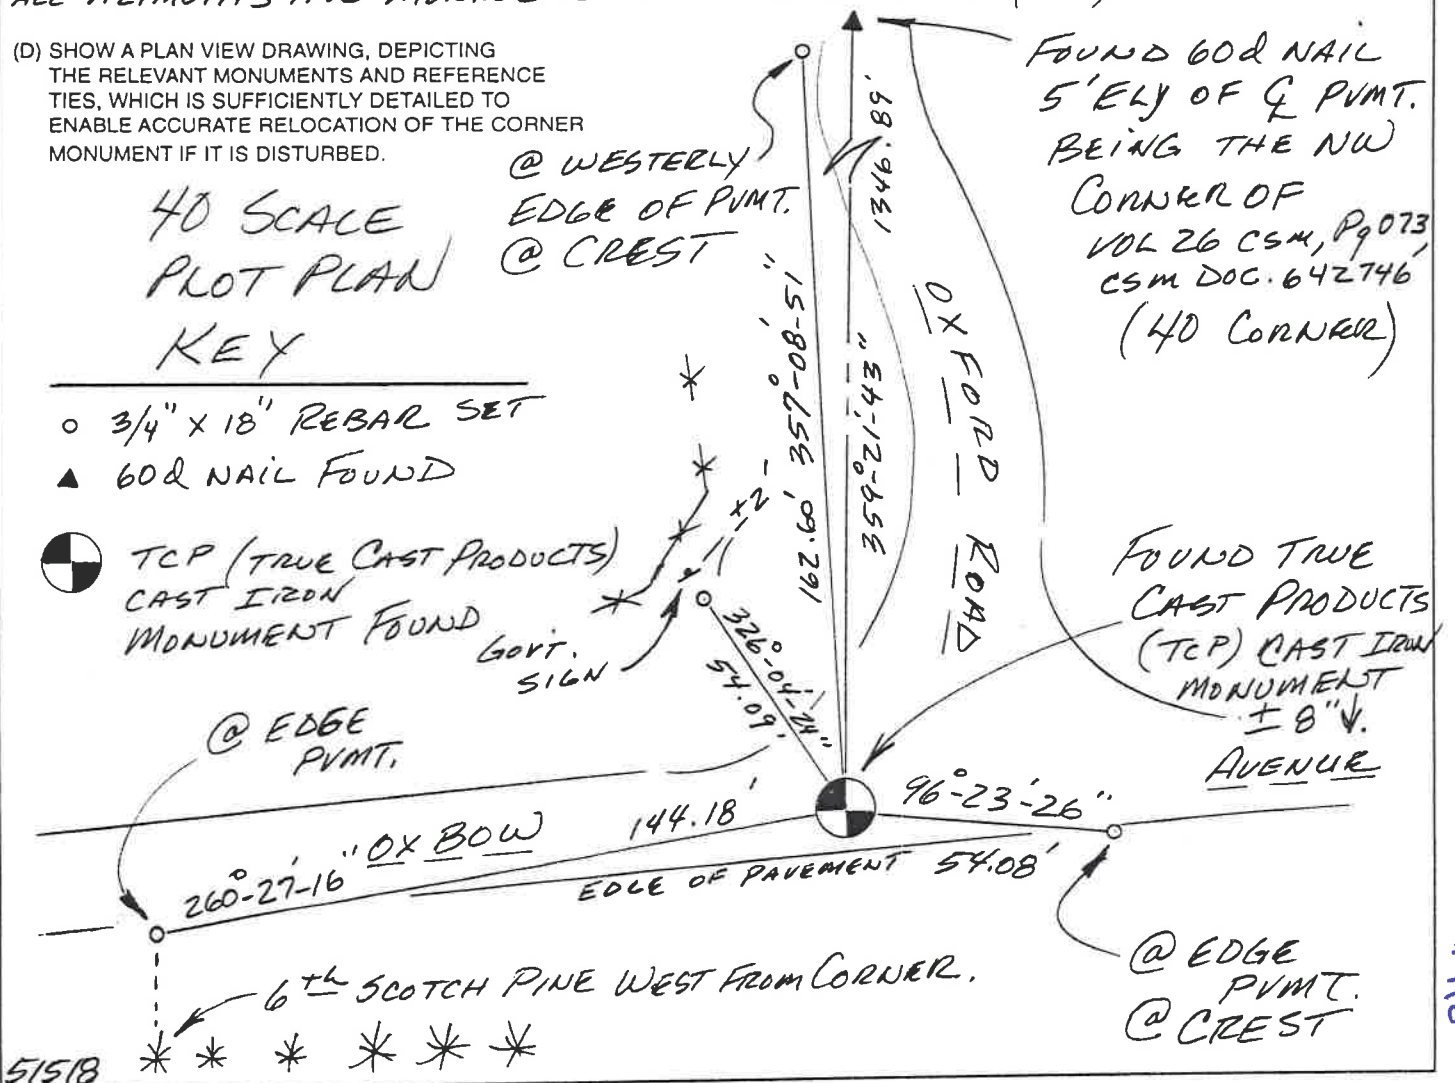 (D) SHOW A PLAN VIEW DRAWING, DEPICTING
THE RELEVANT MONUMENTS AND REFERENCE
TIES, WHICH IS SUFFICIENTLY DETAILED TO
ENABLE ACCURATE RELOCATION OF THE CORNER
MONUMENT IF IT IS DISTURBED.
40 SCALE
PLOT PLAN
KEY
3/4" X 18" REBAR SET
60d NAIL FOUND
TCP (TRUE CAST PRODUCTS)
CAST IRON
MONUMENT FOUND
@ WESTERLY
EDGE OF PVMT.
@ CREST
FOUND 60d NAIL
5' ELY OF ℄ PVMT.
BEING THE NW
CORNER OF
VOL 26 CSM, Pg 073,
CSM DOC. 642746
(40 CORNER)
1346.89'
359°-21'-43"
162.60' 357°-08'-51"
OXFORD ROAD
GOVT.
SIGN
326°-04'-24"
54.09'
FOUND TRUE
CAST PRODUCTS
(TCP) CAST IRON
MONUMENT
± 8"↓.
AVENUE
@ EDGE
PVMT.
96°-23'-26"
54.08'
144.18'
OX BOW
260°-27'-16"
EDGE OF PAVEMENT
@ EDGE
PVMT.
@ CREST
6th SCOTCH PINE WEST FROM CORNER.
51518